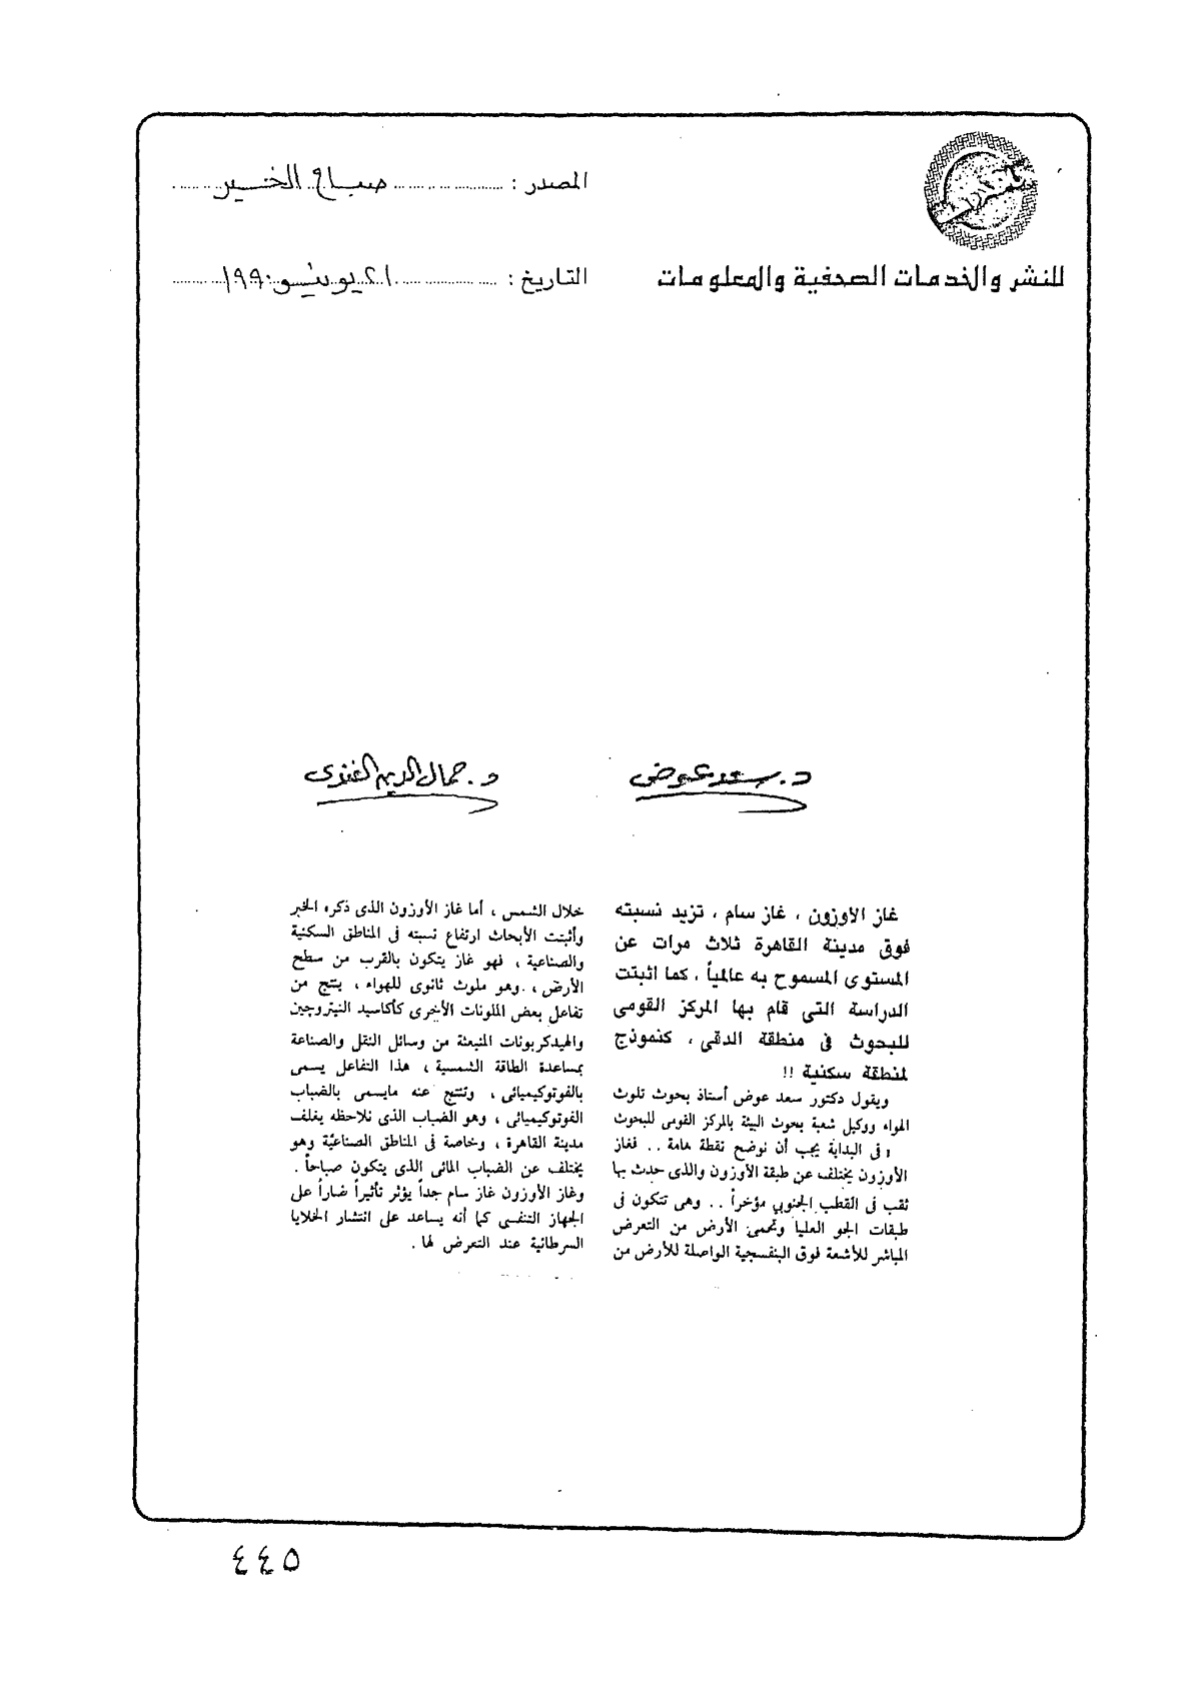 المصدر : صباح الخير
للنشر والخدمات الصحفية والمعلومات
التاريخ : ٢١ يونيو ١٩٩٠
د. سعد عوض
د. جمال الدين الغندى
غاز الاوزون ، غاز سام ، تزيد نسبته
فوق مدينة القاهرة ثلاث مرات عن
المستوى المسموح به عالمياً ، كما اثبتت
الدراسة التى قام بها المركز القومى
للبحوث فى منطقة الدقى ، كنموذج
لمنطقة سكنية !!
ويقول دكتور سعد عوض أستاذ بحوث تلوث
الهواء ووكيل شعبة بحوث البيئة بالمركز القومى للبحوث
، فى البداية يجب أن نوضح نقطة هامة .. فغاز
الأوزون يختلف عن طبقة الأوزون والذى حدث بها
ثقب فى القطب الجنوبي مؤخراً .. وهى تتكون فى
طبقات الجو العليا وتحمى الأرض من التعرض
المباشر للأشعة فوق البنفسجية الواصلة للأرض من
خلال الشمس ، أما غاز الأوزون الذى ذكره الخبر
وأثبتت الأبحاث ارتفاع نسبته فى المناطق السكنية
والصناعية ، فهو غاز يتكون بالقرب من سطح
الأرض ، وهو ملوث ثانوى للهواء ، ينتج من
تفاعل بعض الملونات الأخرى كأكاسيد النيتروجين
والهيدكربونات المنبعثة من وسائل النقل والصناعة
بمساعدة الطاقة الشمسية ، هذا التفاعل يسمى
بالفوتوكيميائى ، وتنتج عنه مايسمى بالضباب
الفوتوكيميائى ، وهو الضباب الذى نلاحظه يغلف
مدينة القاهرة ، وخاصة فى المناطق الصناعيّة وهو
يختلف عن الضباب المائى الذى يتكون صباحاً .
وغاز الأوزون غاز سام جداً يؤثر تأثيراً ضاراً على
الجهاز التنفسى كما أنه يساعد على انتشار الخلايا
السرطانية عند التعرض لها .
٤٤٥